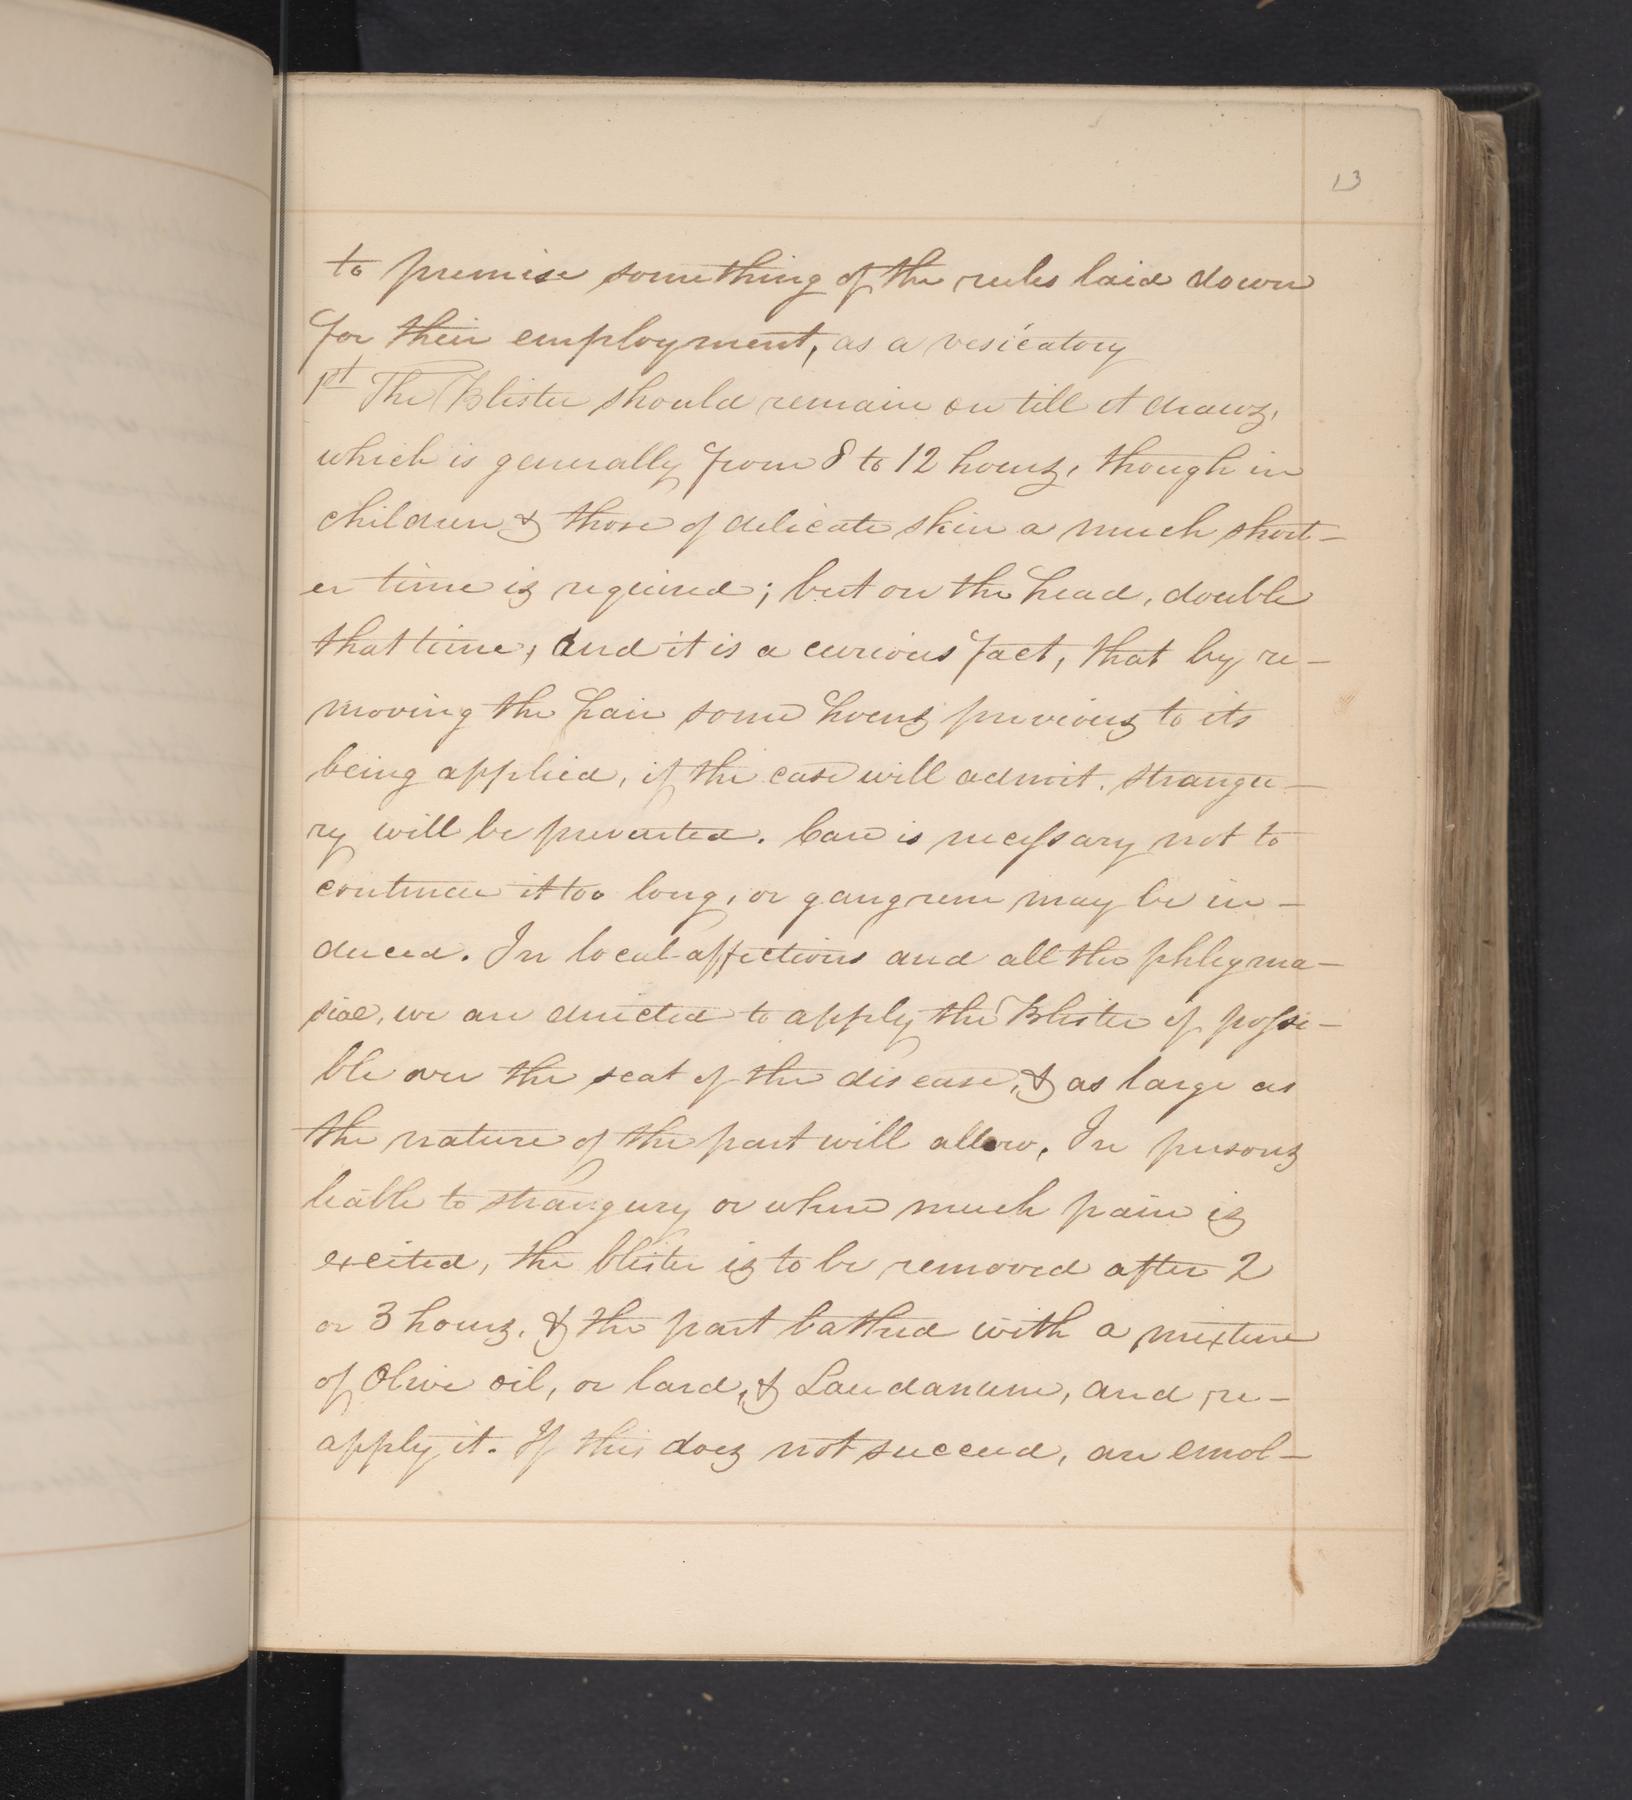 13
to premise something of the rules laid down
for their employment, as a vesicatory
1st The Blister should remain on till it draws,
which is generally from 8 to 12 hours, though in
children & those of delicate skin a much short-
er time is required; but on the head, double
that time, and it is a curious fact, that by re-
moving the hair some hours previous to its
being applied, if the case will admit. strangu-
ry will be prevented. Care is necessary not to
continue it too long, or gangrene may be in-
duced. In local affections and all the phlegma-
siae, we are directed to apply the Blister if possi-
ble over the seat of the disease, & as large as
the nature of the part will allow. In persons
liable to strangury or where much pain is
excited, the blister is to be removed after 2
or 3 hours, & the part bathed with a mixture
of Olive oil, or lard, & Laudanum, and re-
apply it. If this does not succeed, an emol-